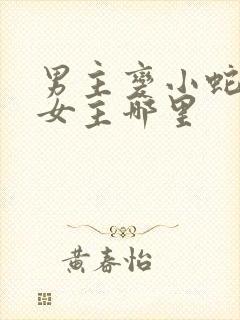 男主变小蛇
女主哪里
黄春怡